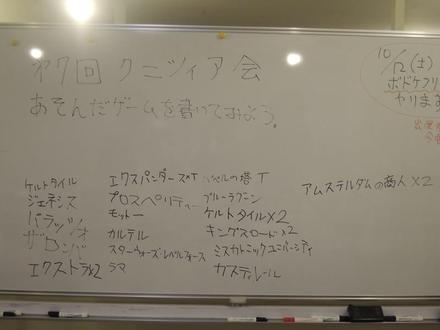 第7回 クニツィア会
あそんだゲームを書いてみよう。
10/12(土)
ボドゲフリ
やります
ケルトタイル
ジェネシス
パラッツォ
ザ ロンバ
エクストラ×2
エクスパンダーズ×T
プロスペリティー
モットー
カルテル
スターウォーズ・レベルフォース
ラマ
バベルの塔 T
ブルーラグーン
ケルトタイル×2
キングスロード×2
ミスカトニックユニバーシティ
カスティレール
アムステルダムの商人×2